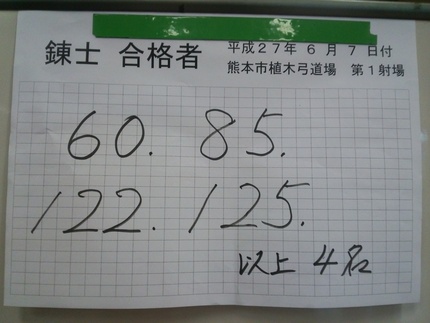 錬士 合格者 平成27年 6月 7日付
熊本市植木弓道場 第1射場
60. 85.
122. 125.
以上 4名